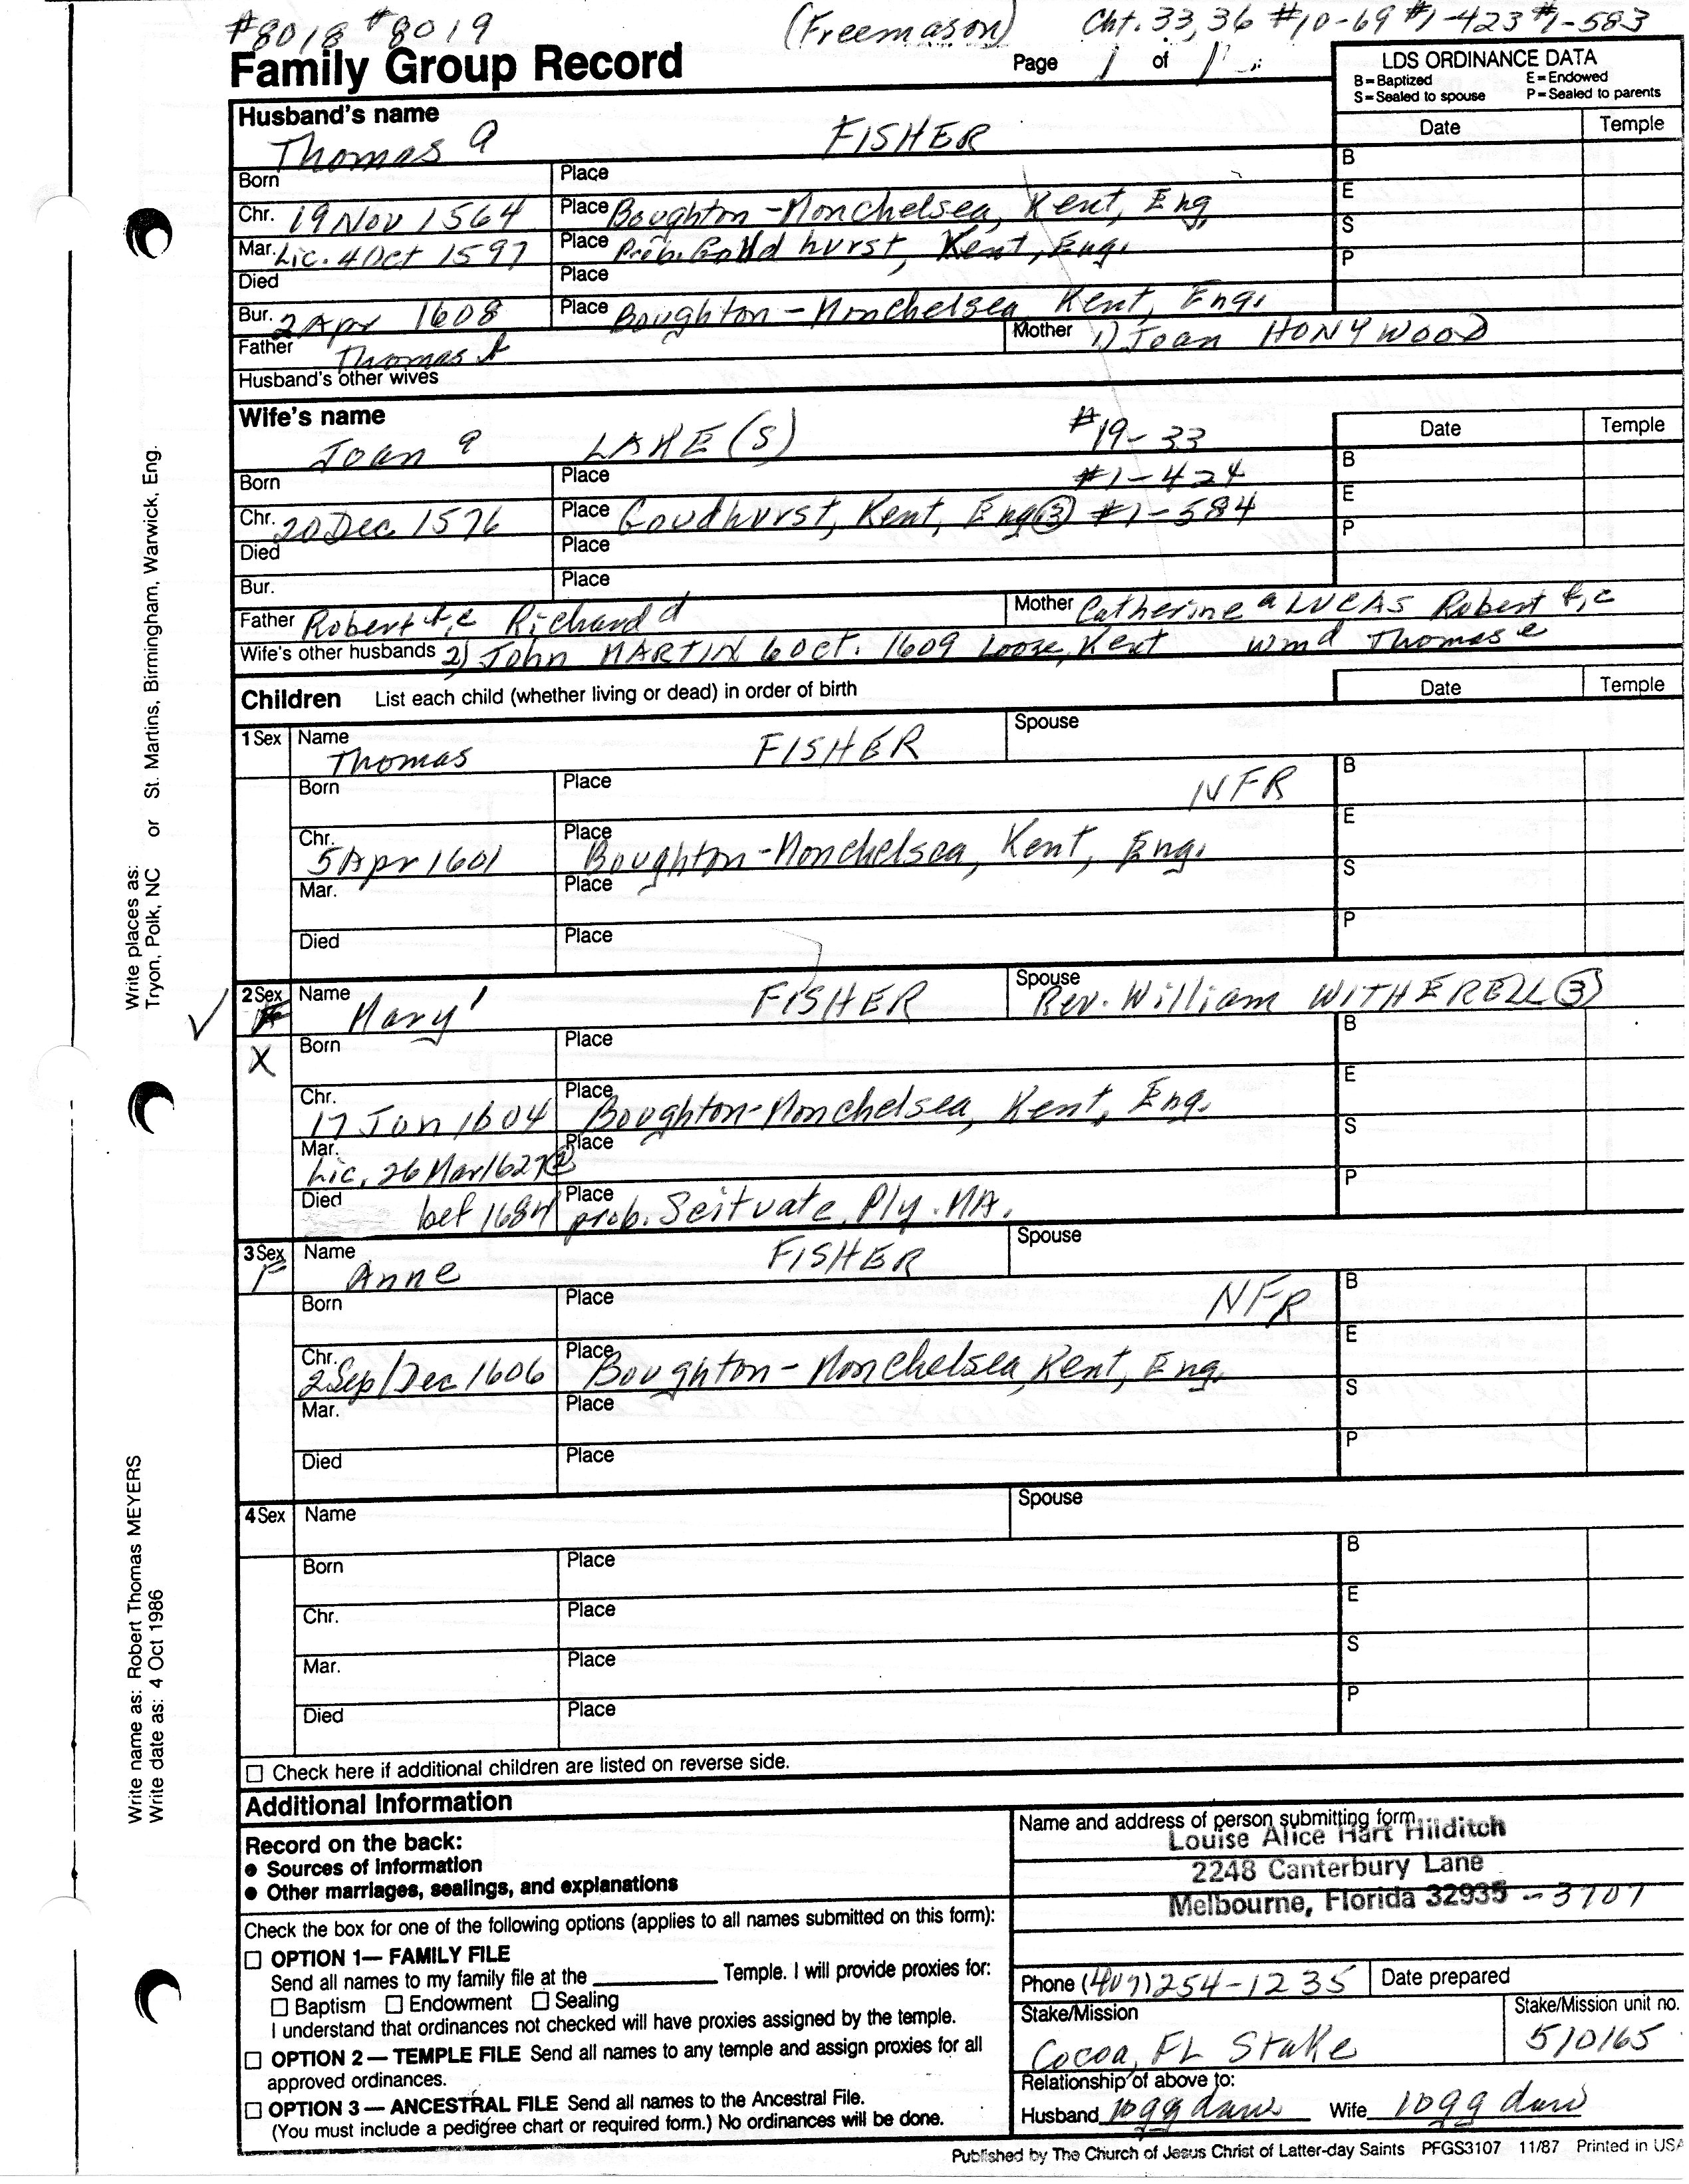 #8018 #8019 (Freemason) Cht. 33, 36 #10-69 #1-423 #1-583
Family Group Record Page 1 of 1
LDS ORDINANCE DATA
B=Baptized E=Endowed
S=Sealed to spouse P=Sealed to parents
Husband's name
Thomas a FISHER
Date Temple
Born Place B
Chr. 19 Nov 1564 Place Boughton-Monchelsea, Kent, Eng. E
Mar. Lic. 4 Oct 1597 Place Prob. hurst, Kent, Eng. S
Died Place P
Bur. 2 Apr 1608 Place Boughton-Monchelsea, Kent, Eng.
Father Thomas A Mother 1) Joan HONYWOOD
Husband's other wives
Wife's name
Joan a LAKE(S) #19-33
Date Temple
Born Place #1-424 B
Chr. 20 Dec 1576 Place Goudhurst, Kent, Eng ③ #1-584 E
Died Place P
Bur. Place
Father Robert f,c Richard d Mother Catherine a LUCAS Robert f,c
Wife's other husbands 2) John MARTIN 6 Oct. 1609 Loose, Kent Wm d Thomas e
Children List each child (whether living or dead) in order of birth Date Temple
1 Sex Name Thomas FISHER Spouse
Born Place NFR B
Chr. 5 Apr 1601 Place Boughton-Monchelsea, Kent, Eng. E
Mar. Place S
Died Place P
2 Sex F Name Mary' FISHER Spouse Rev. William WITHERELL ③
X Born Place B
Chr. 17 Jun 1604 Place Boughton-Monchelsea, Kent, Eng. E
Mar. Lic. 26 Mar 1627 ② Place S
Died bef 1684 Place prob. Scituate, Ply. MA. P
3 Sex F Name Anne FISHER Spouse
Born Place NFR B
Chr. 2 Sep/Dec 1606 Place Boughton-Monchelsea, Kent, Eng. E
Mar. Place S
Died Place P
4 Sex Name Spouse
Born Place B
Chr. Place E
Mar. Place S
Died Place P
Check here if additional children are listed on reverse side.
Additional Information
Record on the back:
● Sources of information
● Other marriages, sealings, and explanations
Check the box for one of the following options (applies to all names submitted on this form):
OPTION 1— FAMILY FILE
Send all names to my family file at the ________ Temple. I will provide proxies for:
Baptism Endowment Sealing
I understand that ordinances not checked will have proxies assigned by the temple.
OPTION 2 — TEMPLE FILE Send all names to any temple and assign proxies for all
approved ordinances.
OPTION 3 — ANCESTRAL FILE Send all names to the Ancestral File.
(You must include a pedigree chart or required form.) No ordinances will be done.
Name and address of person submitting form
Louise Alice Hart Hilditch
2248 Canterbury Lane
Melbourne, Florida 32935 -3707
Phone (407) 254-1235 Date prepared
Stake/Mission Stake/Mission unit no.
Cocoa, FL Stake 510165
Relationship of above to:
Husband 10 gg dau Wife 10gg dau
Published by The Church of Jesus Christ of Latter-day Saints PFGS3107 11/87 Printed in USA
Write places as:
Tryon, Polk, NC or St. Martins, Birmingham, Warwick, Eng.
Write name as: Robert Thomas MEYERS
Write date as: 4 Oct 1986